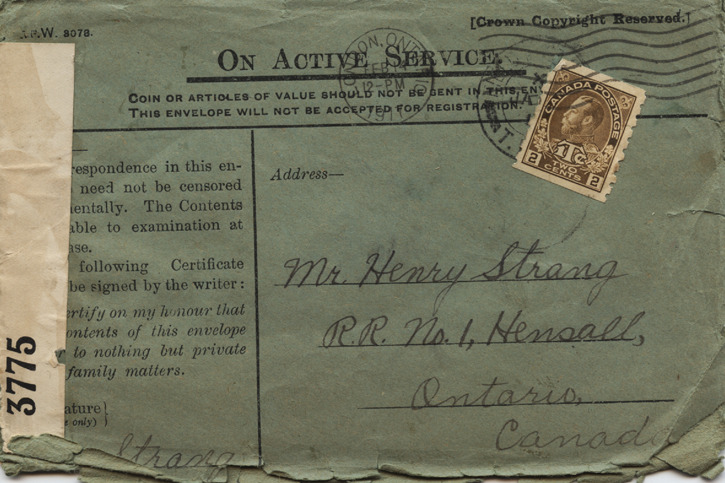 .F.W. 3078.
[Crown Copyright Reserved.]
ON ACTIVE SERVICE.
COIN OR ARTICLES OF VALUE SHOULD NOT BE SENT IN THIS EN
THIS ENVELOPE WILL NOT BE ACCEPTED FOR REGISTRATION.
LONDON, ONT.
FEB
12-PM
CANADA POSTAGE
1Tc
2 TWO CENTS 2
respondence in this en-
need not be censored
entally. The Contents
able to examination at
ase.
following Certificate
be signed by the writer:
ertify on my honour that
ontents of this envelope
r to nothing but private
family matters.
ature}
e only)
Strang
3775
Address—
Mr. Henry Strang
R.R. No. 1, Hensall,
Ontario,
Canada